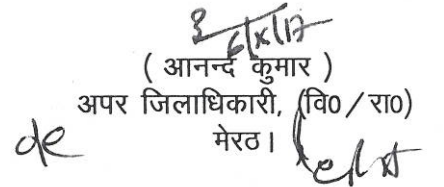 6/X/17
( आनन्द कुमार )
अपर जिलाधिकारी, (वि0 / रा0)
मेरठ।